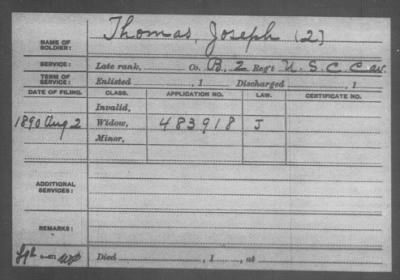 NAME OF SOLDIER: Thomas, Joseph (2)
SERVICE: Late rank, Co. B, 2 Reg't U. S. C. Cav.
TERM OF SERVICE: Enlisted , 1 Discharged , 1
DATE OF FILING. CLASS. APPLICATION NO. LAW. CERTIFICATE NO.
Invalid,
1890 Aug 2 Widow, 483918 J
Minor,
ADDITIONAL SERVICES:
REMARKS:
Died , 1 , at